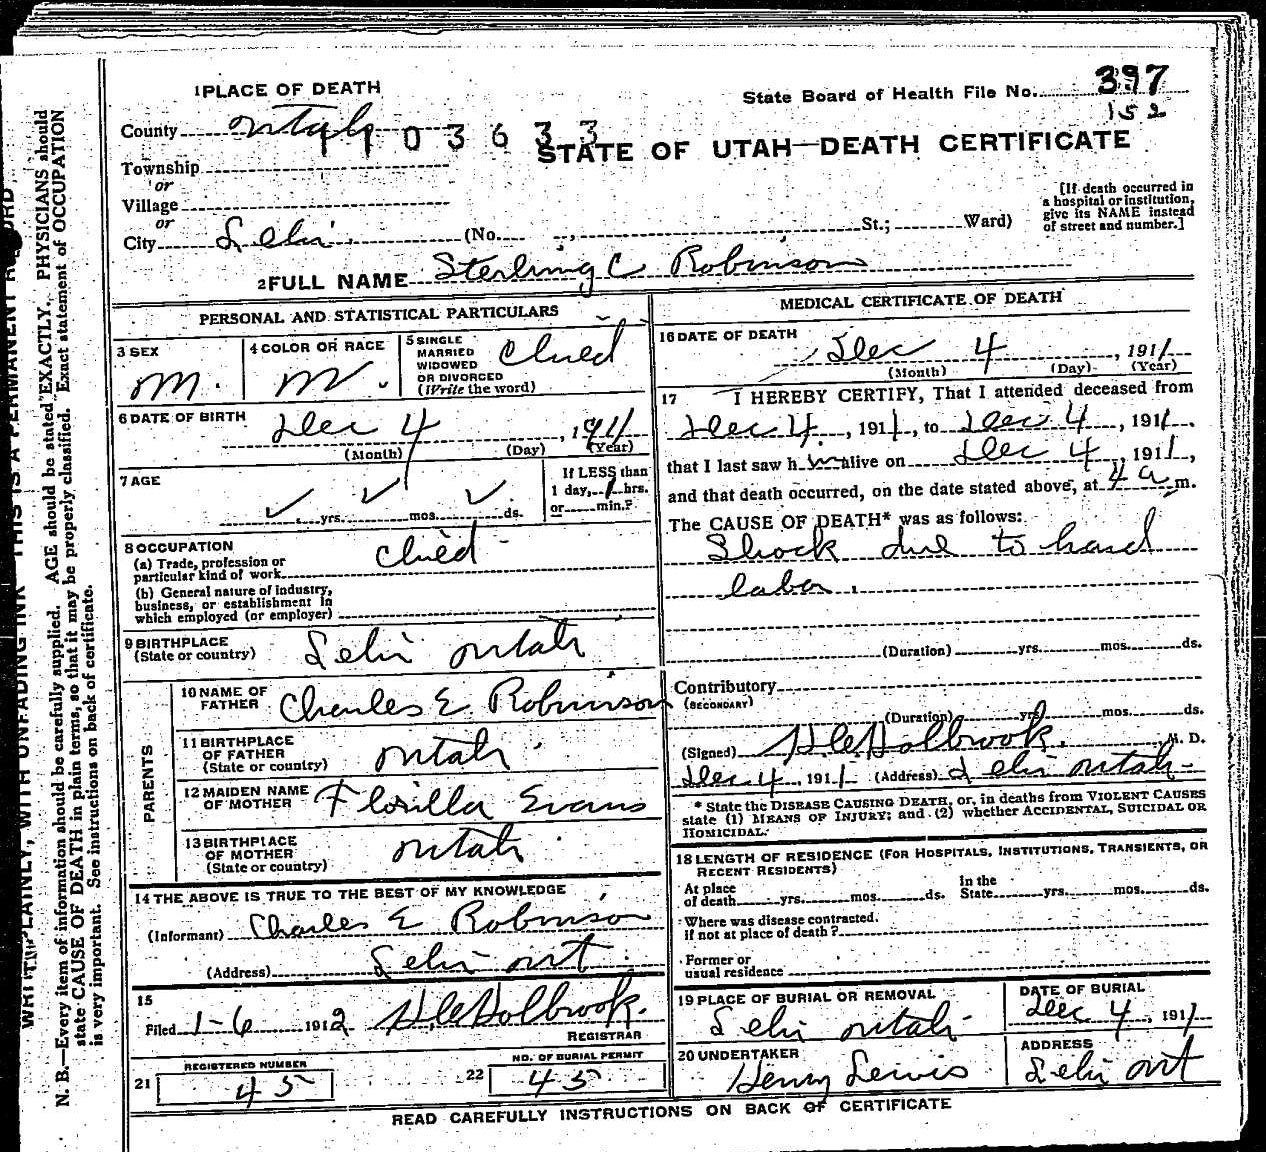 1 PLACE OF DEATH
State Board of Health File No. 397
152
County Utah
1103633
STATE OF UTAH—DEATH CERTIFICATE
Township
or
Village
or
City Lehi (No. , St.; Ward)
[If death occurred in
a hospital or institution,
give its NAME instead
of street and number.]
2 FULL NAME Sterling C Robinson
PERSONAL AND STATISTICAL PARTICULARS
3 SEX
M.
4 COLOR OR RACE
W.
5 SINGLE
MARRIED
WIDOWED
OR DIVORCED
(Write the word)
Child
6 DATE OF BIRTH
Dec 4, 1911
(Month) (Day) (Year)
7 AGE
yrs. mos. ds.
If LESS than
1 day, 1 hrs.
or min.?
8 OCCUPATION
(a) Trade, profession or
particular kind of work
Child
(b) General nature of industry,
business, or establishment in
which employed (or employer)
9 BIRTHPLACE
(State or country) Lehi Utah
PARENTS
10 NAME OF
FATHER Charles E Robinson
11 BIRTHPLACE
OF FATHER
(State or country) Utah
12 MAIDEN NAME
OF MOTHER Florilla Evans
13 BIRTHPLACE
OF MOTHER
(State or country) Utah
14 THE ABOVE IS TRUE TO THE BEST OF MY KNOWLEDGE
(Informant) Charles E Robinson
(Address) Lehi Ut
15
Filed 1-6 1912 Holbrook.
REGISTRAR
21 REGISTERED NUMBER
45
22 NO. OF BURIAL PERMIT
45
MEDICAL CERTIFICATE OF DEATH
16 DATE OF DEATH
Dec 4, 1911
(Month) (Day) (Year)
17 I HEREBY CERTIFY, That I attended deceased from
Dec 4, 1911, to Dec 4, 1911.
that I last saw him alive on Dec 4, 1911,
and that death occurred, on the date stated above, at 4 a m.
The CAUSE OF DEATH* was as follows:
Shock due to hard
labor.
(Duration) yrs. mos. ds.
Contributory
(SECONDARY)
(Duration) yrs. mos. ds.
(Signed) Holbrook. M. D.
Dec 4, 1911 (Address) Lehi Utah
* State the DISEASE CAUSING DEATH, or, in deaths from VIOLENT CAUSES
state (1) MEANS OF INJURY; and (2) whether ACCIDENTAL, SUICIDAL OR
HOMICIDAL.
18 LENGTH OF RESIDENCE (FOR HOSPITALS, INSTITUTIONS, TRANSIENTS, OR
RECENT RESIDENTS)
At place
of death yrs. mos. ds.
In the
State yrs. mos. ds.
Where was disease contracted.
if not at place of death?
Former or
usual residence
19 PLACE OF BURIAL OR REMOVAL
Lehi Utah
DATE OF BURIAL
Dec 4, 1911
20 UNDERTAKER
Henry Lewis
ADDRESS
Lehi Ut
READ CAREFULLY INSTRUCTIONS ON BACK OF CERTIFICATE
WRITE PLAINLY, WITH UNFADING INK THIS IS A PERMANENT RECORD
N. B.—Every item of information should be carefully supplied. AGE should be stated EXACTLY. PHYSICIANS should
state CAUSE OF DEATH in plain terms, so that it may be properly classified. Exact statement of OCCUPATION
is very important. See instructions on back of certificate.